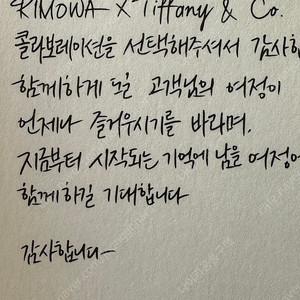 RIMOWA X Tiffany & Co.
콜라보레이션을 선택해주셔서 감사합
함께하게 될 고객님의 여정이
언제나 즐거우시기를 바라며,
지금부터 시작되는 기억에 남을 여정에
함께하길 기대합니다
감사합니다-